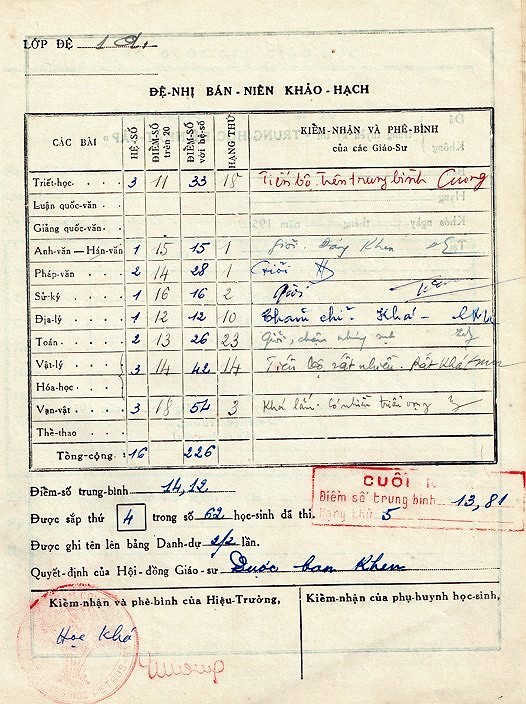 LỚP ĐỆ 1
ĐỆ-NHỊ BÁN-NIÊN KHẢO-HẠCH
CÁC BÀI HỆ-SỐ ĐIỂM-SỐ trên 20 ĐIỂM-SỐ với hệ-số HẠNG THỨ KIỂM-NHẬN VÀ PHÊ-BÌNH của các Giáo-Sư
Triết-học 3 11 33 18 Tiến bộ. trên trung bình Cương
Luận quốc-văn
Giảng quốc-văn
Anh-văn — Hán-văn 1 15 15 1 Giỏi. Đáng Khen
Pháp-văn 2 14 28 1 Giỏi
Sử-ký 1 16 16 2 Giỏi
Địa-lý 1 12 12 10 Chăm chỉ. Khá
Toán 2 13 26 23 Giỏi, chăm
Vật-lý 3 14 42 14 Tiến bộ rất nhiều. Rất Khá
Hóa-học
Vạn-vật 3 18 54 3 Khá lắm. Có nhiều triển vọng
Thể-thao
Tổng-cộng : 16 226
Điểm-số trung-bình 14,12
CUỐI
Điểm số trung bình 13,81
Hạng thứ 5
Được sắp thứ 4 trong số 62 học-sinh đã thi.
Được ghi tên lên bảng Danh-dự 2/2 lần.
Quyết-định của Hội-đồng Giáo-sư Được ban Khen
Kiểm-nhận và phê-bình của Hiệu-Trưởng, Kiểm-nhận của phụ-huynh học-sinh,
Học Khá